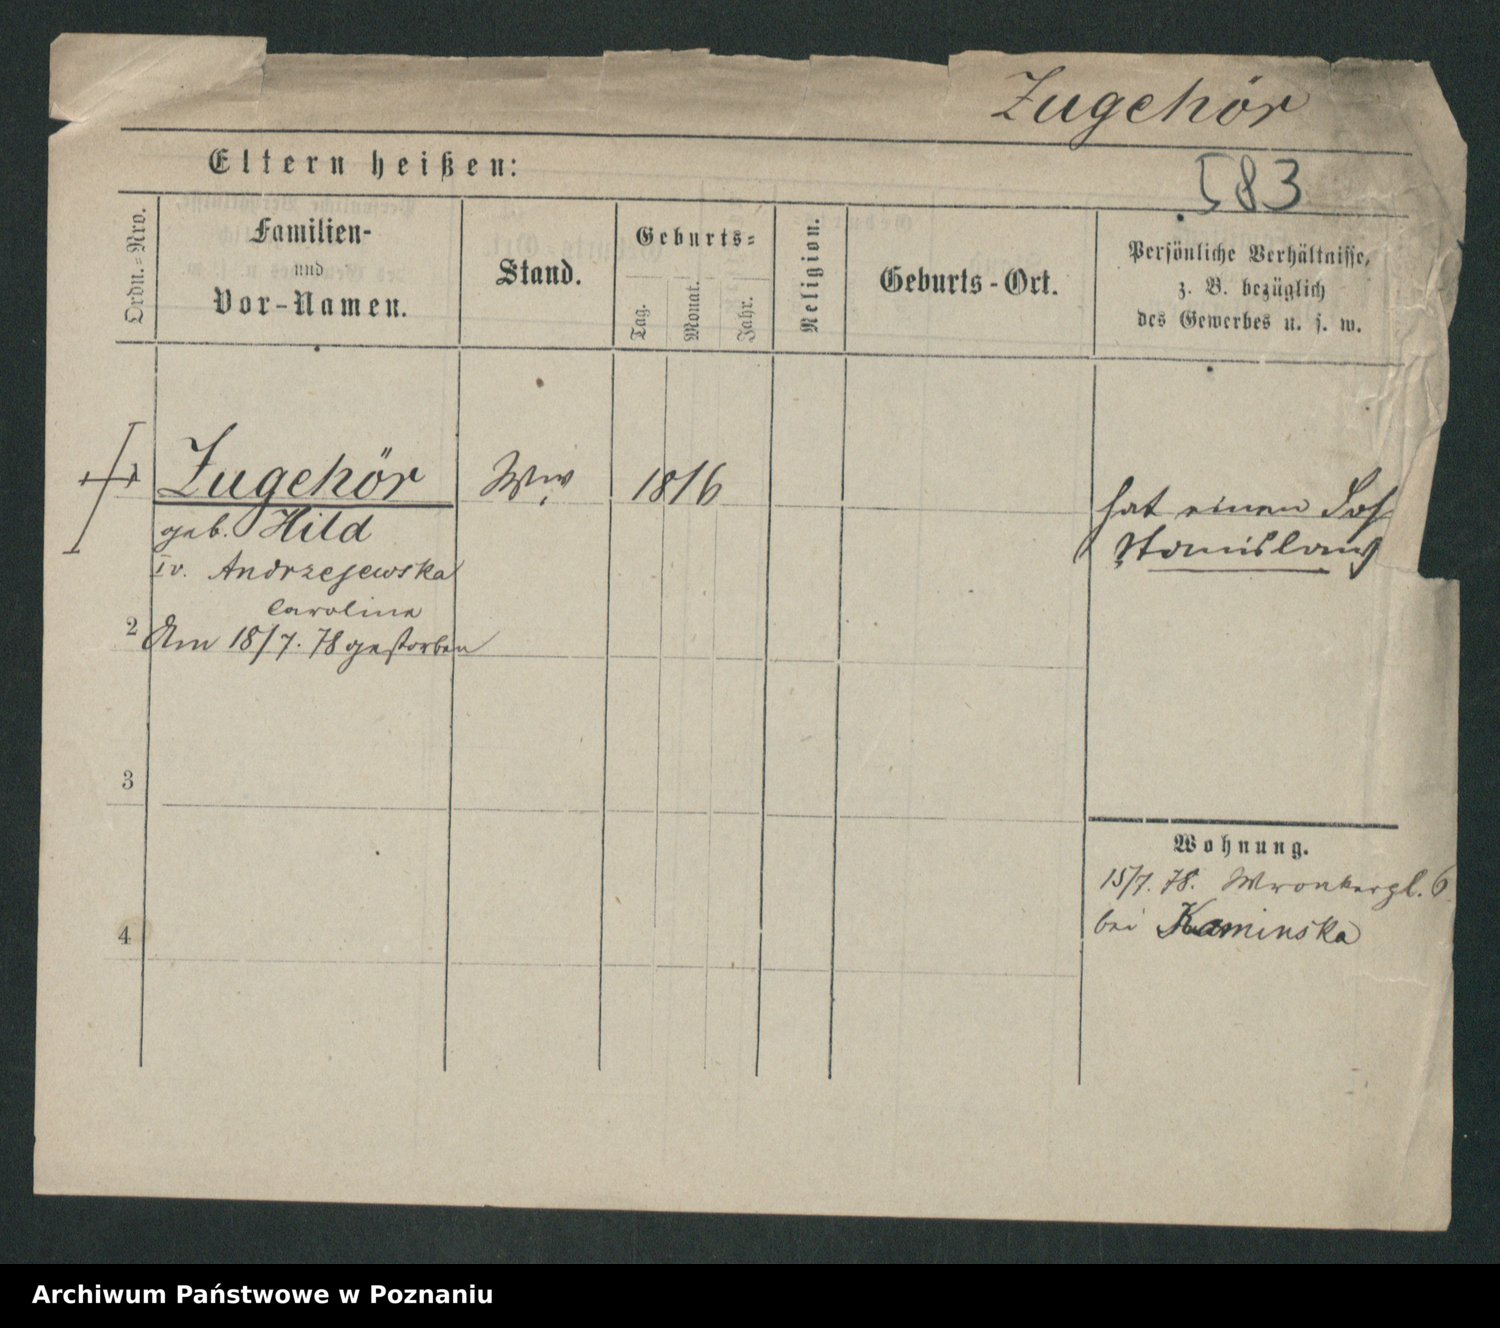 Zugehör
Eltern heißen:
583
Ordn.=Nro.
Familien-
und
Vor-Namen.
Stand.
Geburts=
Tag.
Monat.
Jahr.
Religion.
Geburts-Ort.
Persönliche Verhältnisse,
z. B. bezüglich
des Gewerbes u. s. w.
Zugehör
Ww
1816
geb. Hild
Iv. Andrzejewska
Caroline
2
Am 18/7. 78 gestorben
hat einen Sohn
Stanislaus
3
4
Wohnung.
15/7. 78. Wronkerpl. 6
bei Kaminska
Archiwum Państwowe w Poznaniu